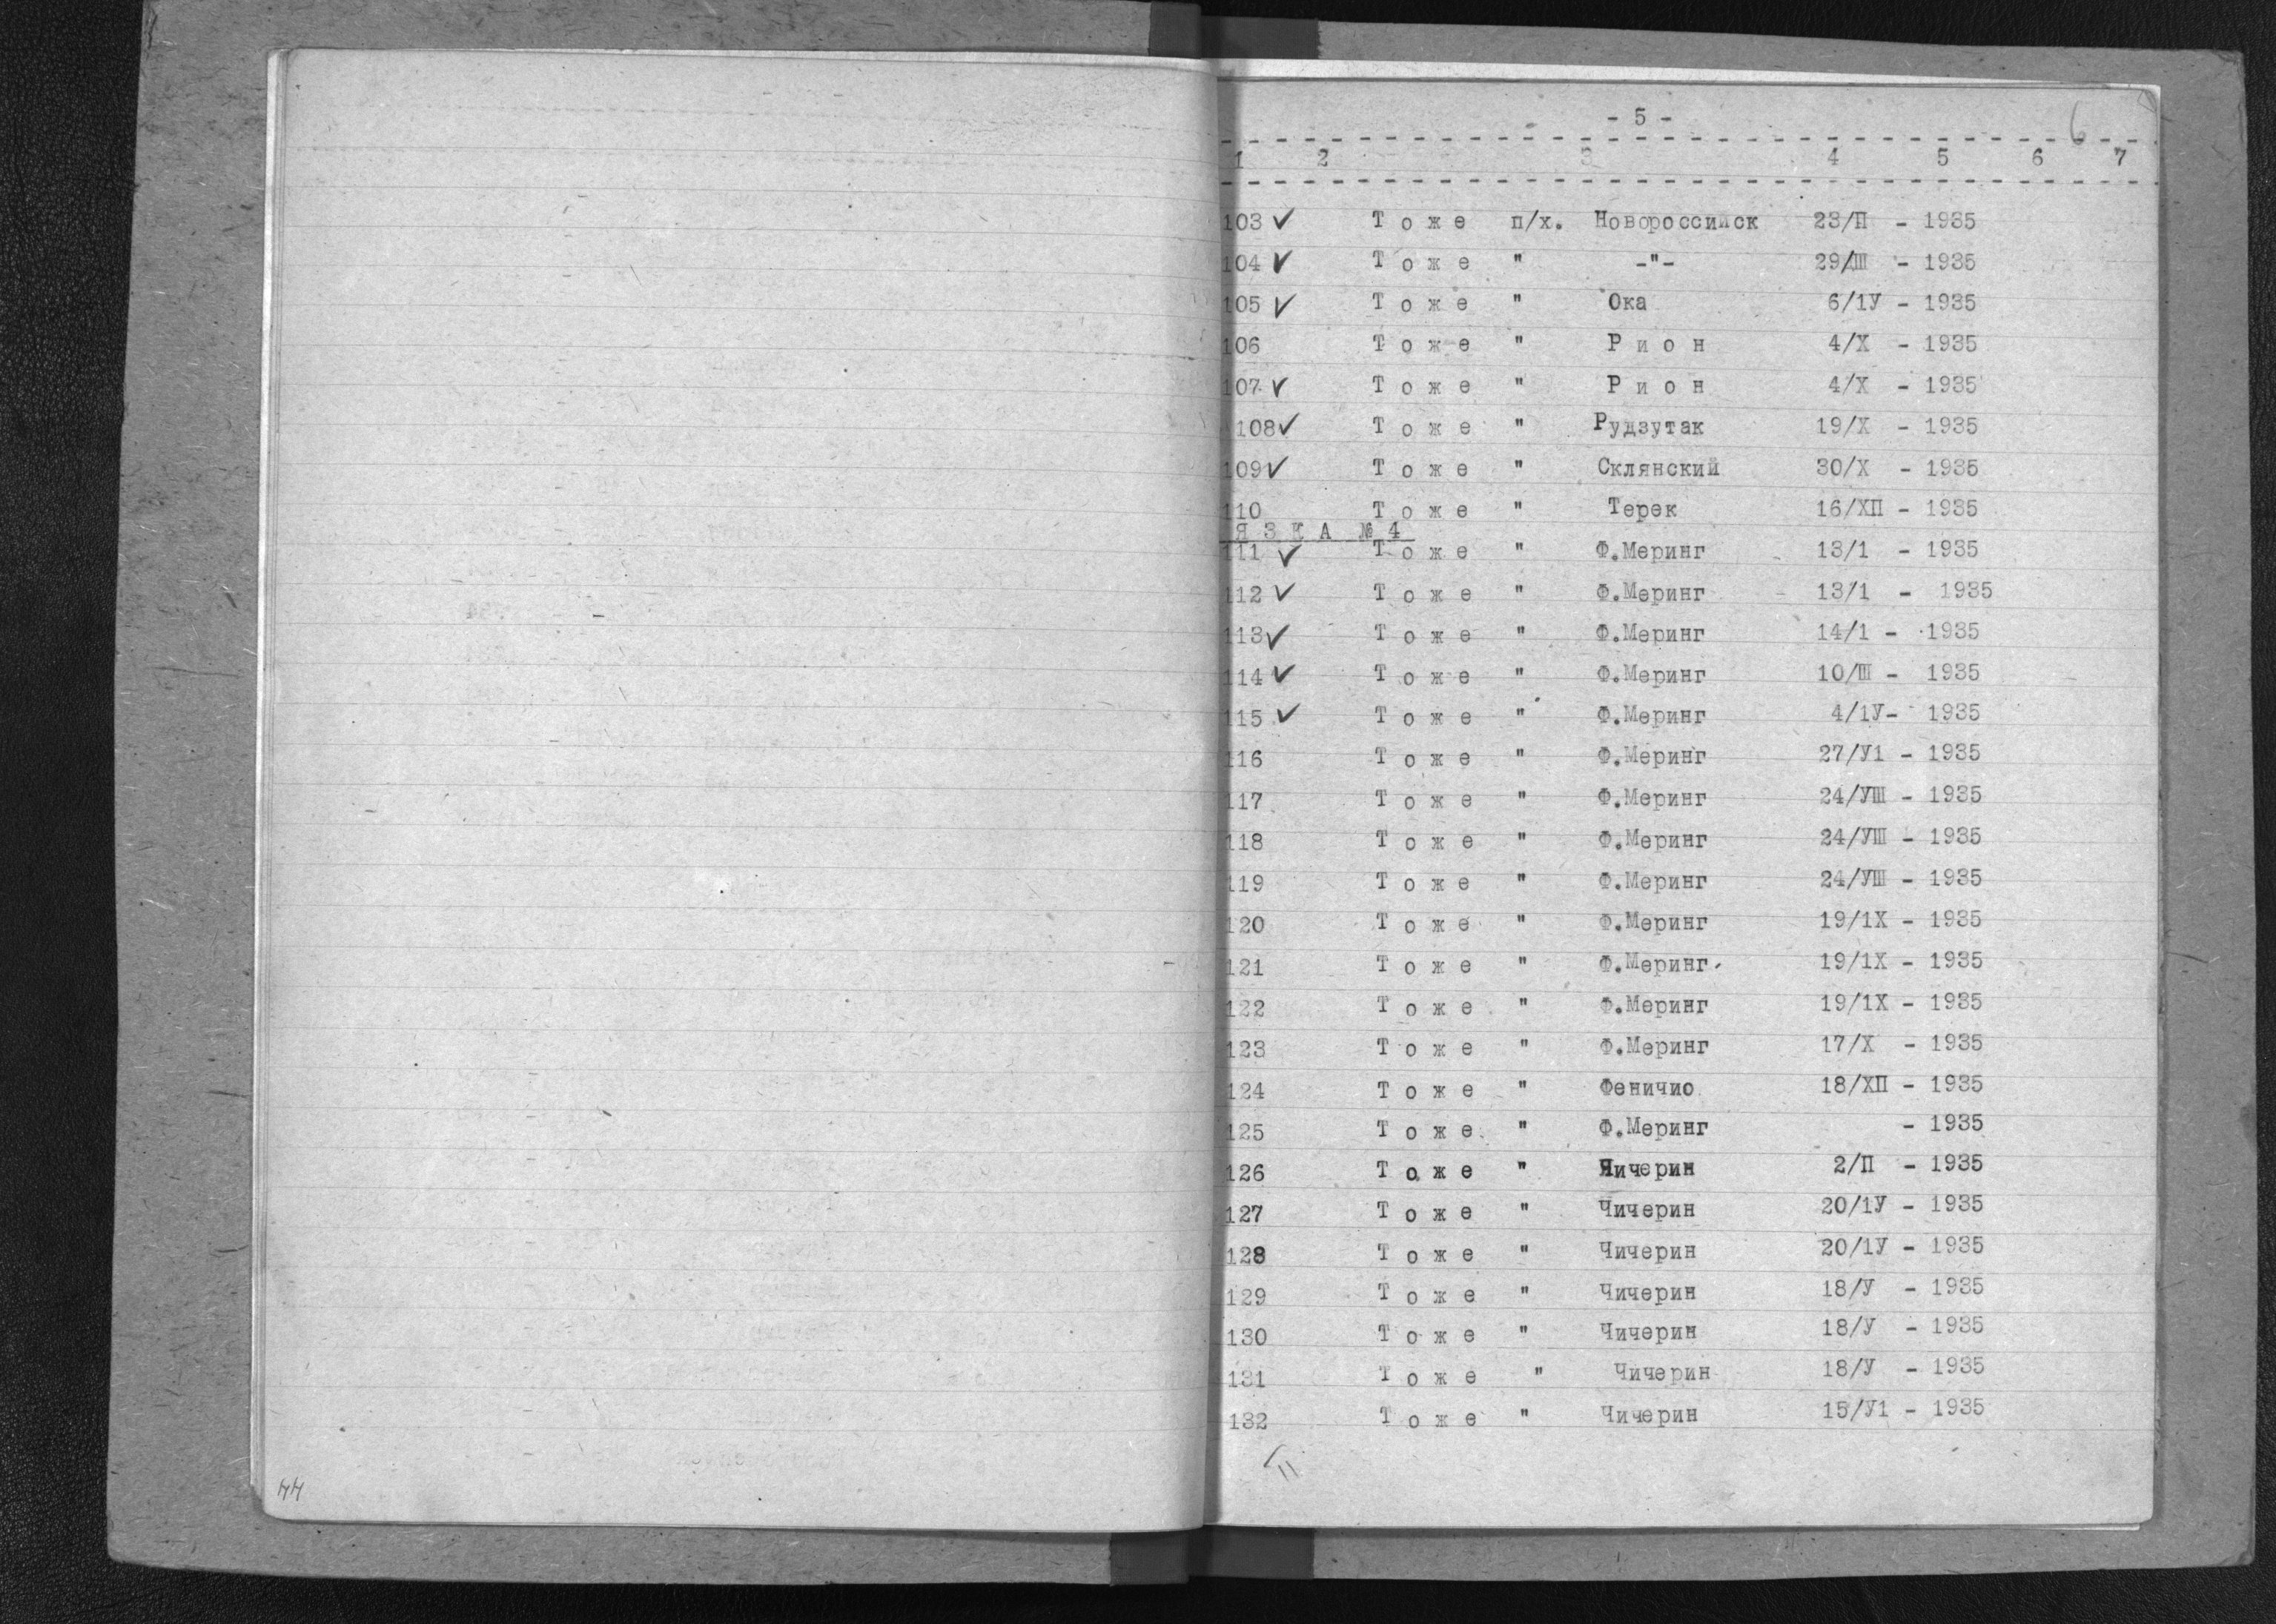 - 5 -
6
1 2 3 4 5 6 7
103 ✓ Тоже п/х. Новороссийск 23/П - 1935
104 ✓ Тоже " -"- 29/Ш - 1935
105 ✓ Тоже " Ока 6/1У - 1935
106 Тоже " Рион 4/Х - 1935
107 ✓ Тоже " Рион 4/Х - 1935
108 ✓ Тоже " Рудзутак 19/Х - 1935
109 ✓ Тоже " Склянский 30/Х - 1935
110 Тоже " Терек 16/ХП - 1935
ЯЗКА № 4
111 ✓ Тоже " Ф.Меринг 13/1 - 1935
112 ✓ Тоже " Ф.Меринг 13/1 - 1935
113 ✓ Тоже " Ф.Меринг 14/1 - 1935
114 ✓ Тоже " Ф.Меринг 10/Ш - 1935
115 ✓ Тоже " Ф.Меринг 4/1У- 1935
116 Тоже " Ф.Меринг 27/У1 - 1935
117 Тоже " Ф.Меринг 24/УШ - 1935
118 Тоже " Ф.Меринг 24/УШ - 1935
119 Тоже " Ф.Меринг 24/УШ - 1935
120 Тоже " Ф.Меринг 19/1Х - 1935
121 Тоже " Ф.Меринг 19/1Х - 1935
122 Тоже " Ф.Меринг 19/1Х - 1935
123 Тоже " Ф.Меринг 17/Х - 1935
124 Тоже " Феничио 18/ХП - 1935
125 Тоже " Ф.Меринг - 1935
126 Тоже " Чичерин 2/П - 1935
127 Тоже " Чичерин 20/1У - 1935
128 Тоже " Чичерин 20/1У - 1935
129 Тоже " Чичерин 18/У - 1935
130 Тоже " Чичерин 18/У - 1935
131 Тоже " Чичерин 18/У - 1935
132 Тоже " Чичерин 15/У1 - 1935
44